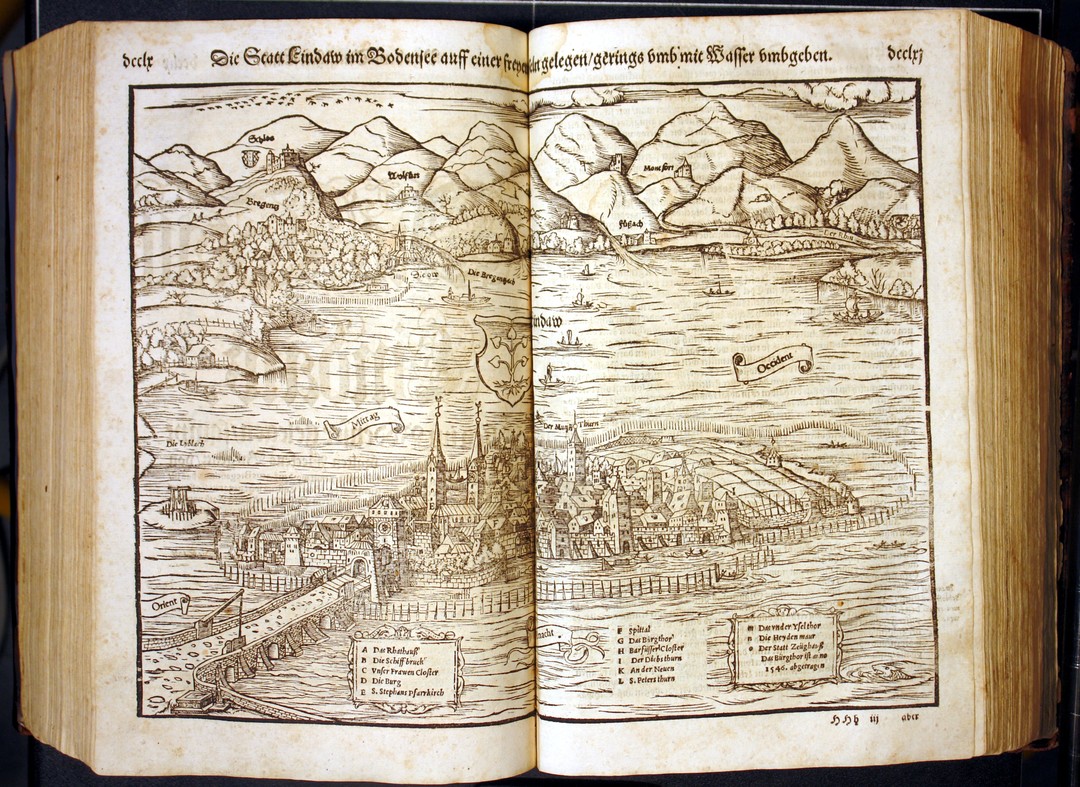 dcclx
Die Statt Lindaw im Bodensee auff einer freyen
gelegen/gerings vmb mit Wasser vmbgeben.
dcclxj
Schlos
Bregentz
Wolfurt
Montfort
Fussach
Die Bregentzach
indaw
Occident
Mittag
Der Mangh Thurn
Die Lyblach
Orient
nacht
A Das Rhathauß
B Die Schiffbruck
C Vnser Frawen Closter
D Die Burg
E S. Stephans Pfarrkirch
F Spittal
G Das Burgthor
H Barfüsser Closter
I Der Diebsthurn
K An der Neuen
L S. Petersthurn
m Das vnder Yselthor
n Die Heydenmaur
o Der Statt Zeughauß
Das Burgthor ist anno
1546. abgetragen
HHh iij
aber